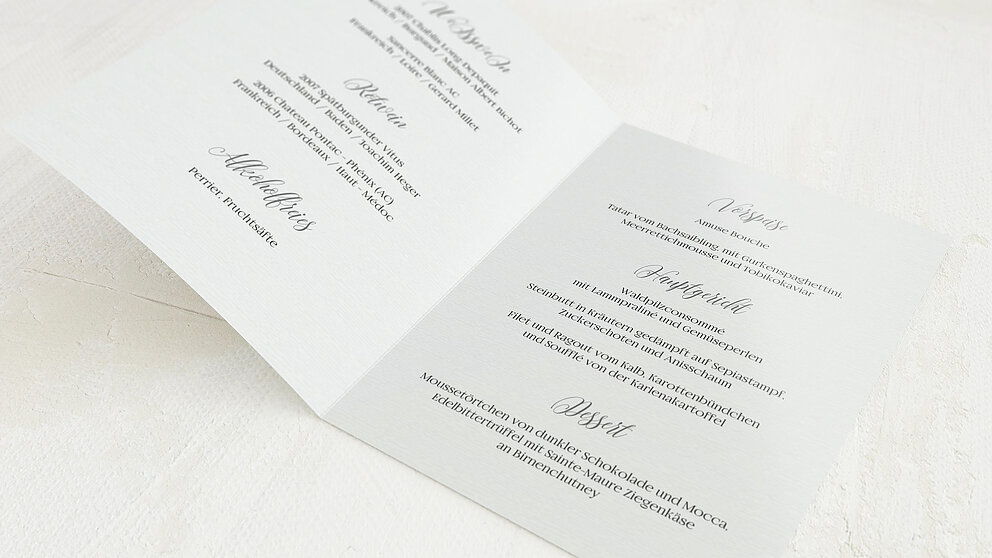 Weißwein
2007 Chablis Long-Depaquit
/ Burgund / Maison Albert Bichot
Sancerre Blanc AC
Frankreich / Loire / Gerard Millet
Rotwein
2007 Spätburgunder Vitus
Deutschland / Baden / Joachim Heger
2006 Chateau Pontac – Phénix (AC)
Frankreich / Bordeaux / Haut – Médoc
Alkoholfreies
Perrier, Fruchtsäfte
Vorspeise
Amuse Bouche
Tatar vom Bachsaibling, mit Gurkenspaghettini,
Meerrettichmousse und Tobikokaviar
Hauptgericht
Waldpilzconsommé
mit Lammpraliné und Gemüseperlen
Steinbutt in Kräutern gedämpft auf Sepiastampf,
Zuckerschoten und Anisschaum
Filet und Ragout vom Kalb, Karottenbündchen
und Soufflé von der Karlenakartoffel
Dessert
Moussetörtchen von dunkler Schokolade und Mocca,
Edelbittertrüffel mit Sainte-Maure Ziegenkäse
an Birnenchutney